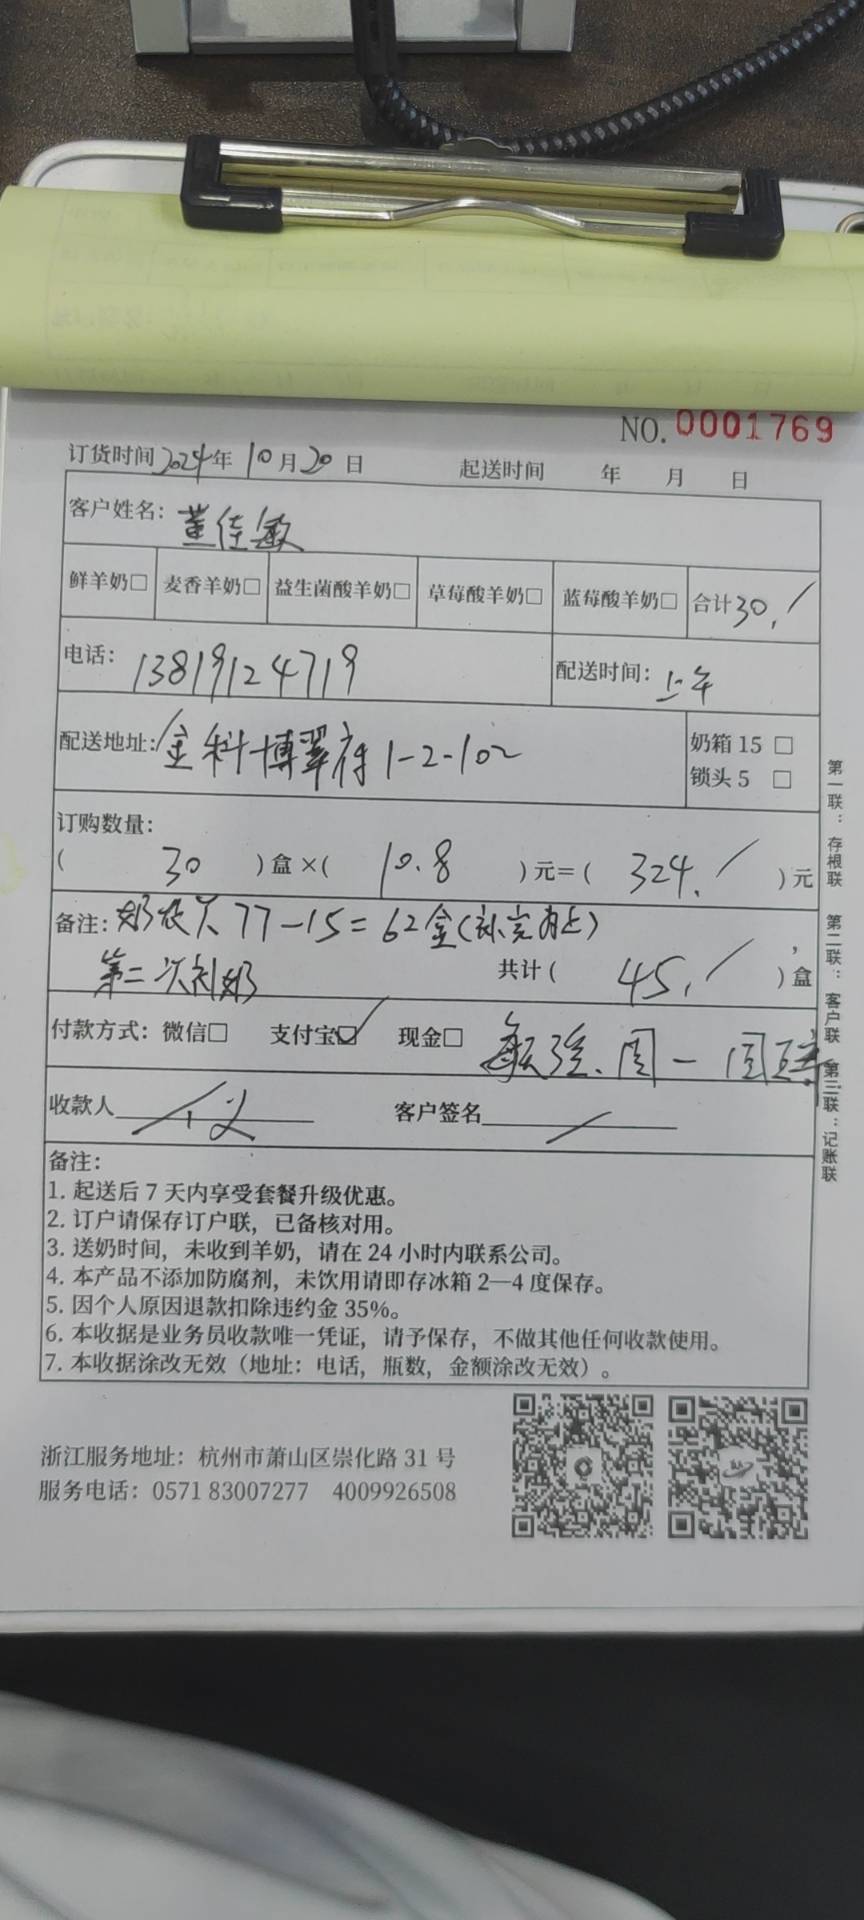 NO. 0001769
订货时间 2024年 10月20日 起送时间 年 月 日
客户姓名：董佳敏
鲜羊奶□ 麦香羊奶□ 益生菌酸羊奶□ 草莓酸羊奶□ 蓝莓酸羊奶□ 合计30.
电话：13819124719 配送时间：上午
配送地址：金科博翠府1-2-102
奶箱 15 □
锁头 5 □
订购数量：
( 30 )盒×( 10.8 )元=( 324. )元
备注：77-15=62盒
第二次 共计( 45. )盒
付款方式：微信□ 支付宝☑ 现金□ 周一
收款人 客户签名
备注：
1. 起送后 7 天内享受套餐升级优惠。
2. 订户请保存订户联，已备核对用。
3. 送奶时间，未收到羊奶，请在 24 小时内联系公司。
4. 本产品不添加防腐剂，未饮用请即存冰箱 2—4 度保存。
5. 因个人原因退款扣除违约金 35%。
6. 本收据是业务员收款唯一凭证，请予保存，不做其他任何收款使用。
7. 本收据涂改无效（地址：电话，瓶数，金额涂改无效）。
第一联：存根联 第二联：客户联 第三联：记账联
浙江服务地址：杭州市萧山区崇化路 31 号
服务电话：0571 83007277 4009926508